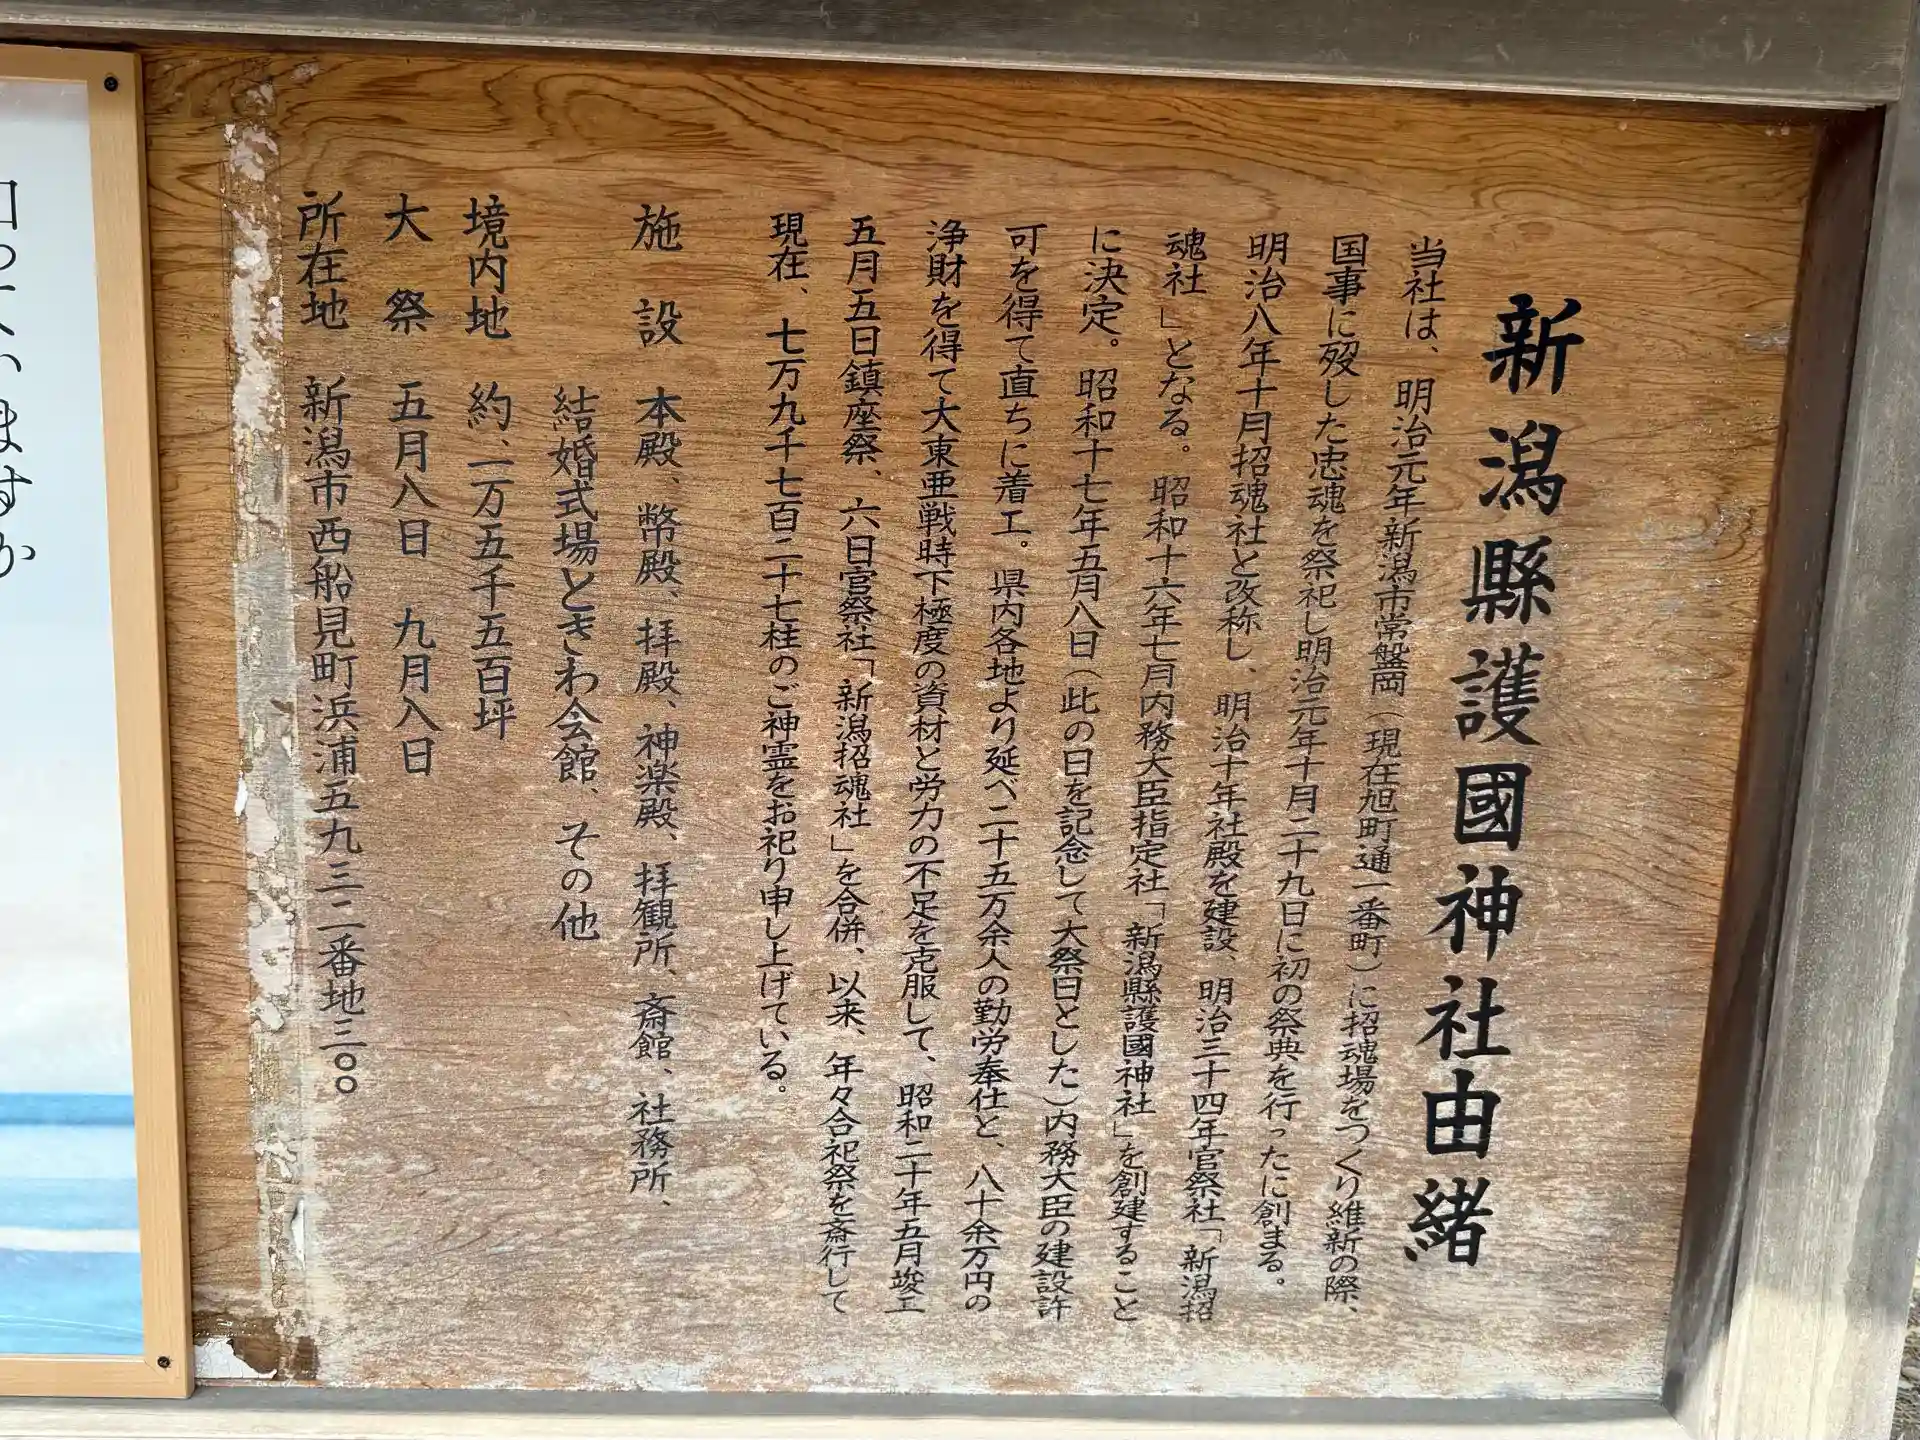 新潟縣護國神社由緒
当社は、明治元年新潟市常盤岡（現在旭町通一番町）に招魂場をつくり維新の際、
国事に殁した忠魂を祭祀し明治元年十月二十九日に初の祭典を行ったに創まる。
明治八年十月招魂社と改称し、明治十年社殿を建設、明治三十四年官祭社「新潟招
魂社」となる。昭和十六年七月内務大臣指定社「新潟縣護國神社」を創建すること
に決定。昭和十七年五月八日（此の日を記念して大祭日とした）内務大臣の建設許
可を得て直ちに着工。県内各地より延べ二十五万余人の勤労奉仕と、八十余万円の
浄財を得て大東亜戦時下極度の資材と労力の不足を克服して、昭和二十年五月竣工
五月五日鎮座祭、六日官祭社「新潟招魂社」を合併、以来、年々合祀祭を斎行して
現在、七万九千七百二十七柱のご神霊をお祀り申し上げている。
施設 本殿、幣殿、拝殿、神楽殿、拝観所、斎館、社務所、
結婚式場ときわ会館、その他
境内地 約、一万五千五百坪
大祭 五月八日 九月八日
所在地 新潟市西船見町浜浦五九三二番地三〇〇
ますか